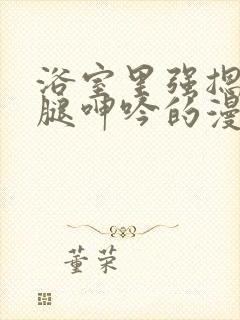 浴室里强揌
腿呻吟的漫
董荣